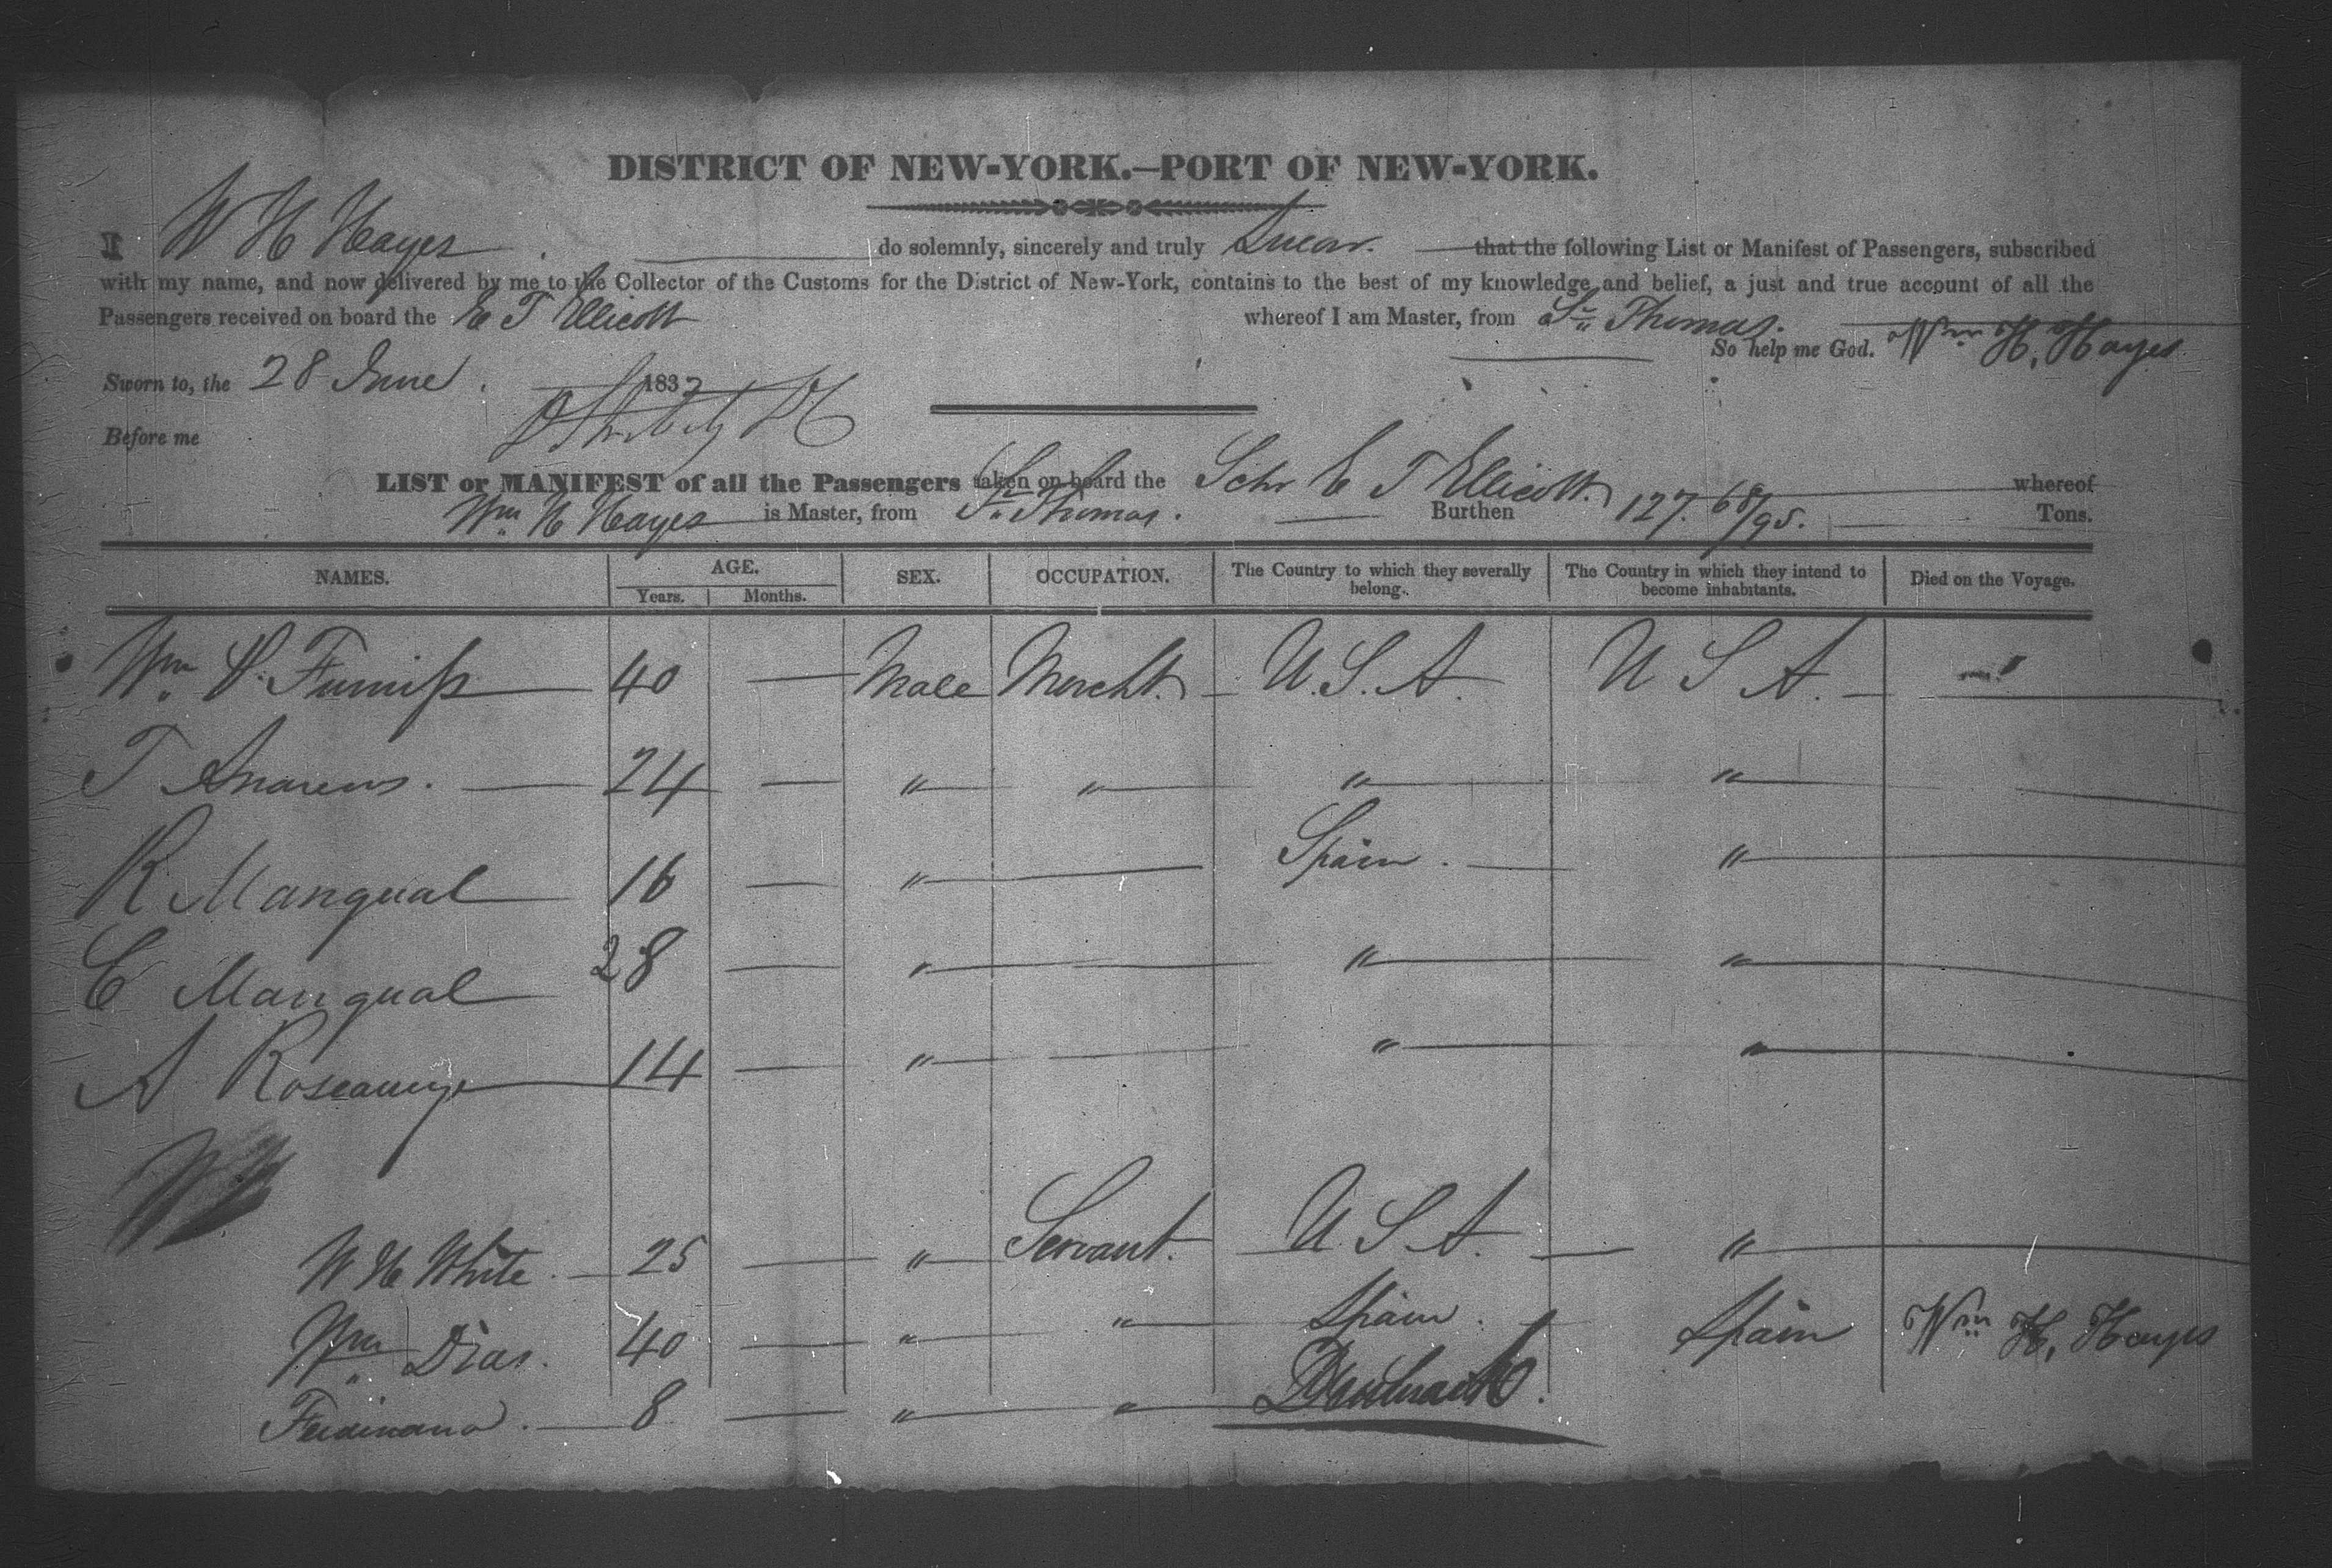 DISTRICT OF NEW-YORK.—PORT OF NEW-YORK.
I W H Hayes do solemnly, sincerely and truly Swear. that the following List or Manifest of Passengers, subscribed
with my name, and now delivered by me to the Collector of the Customs for the District of New-York, contains to the best of my knowledge and belief, a just and true account of all the
Passengers received on board the E T Ellicott whereof I am Master, from St Thomas.
So help me God. Wm H. Hayes
Sworn to, the 28 June. 1832
Before me
LIST or MANIFEST of all the Passengers taken on board the Schr E T Ellicott whereof
Wm H Hayes is Master, from St Thomas. Burthen 127. 68/95. Tons.
NAMES. AGE. SEX. OCCUPATION. The Country to which they severally belong. The Country in which they intend to become inhabitants. Died on the Voyage.
Years. Months.
Wm P. Furniss 40 — Male Mercht. U.S.A. U S A. — "
T Andrews. 24 — " " " "
R Mangual 16 — " — Spain. "
C Mangual 28 — " — " "
A 14 — " — " "
W H White. 25 — " Servant. U S A. "
Wm Dias. 40 — " " Spain. Spain Wm H. Hayes
Ferdinand. 8 — " " Denmark.